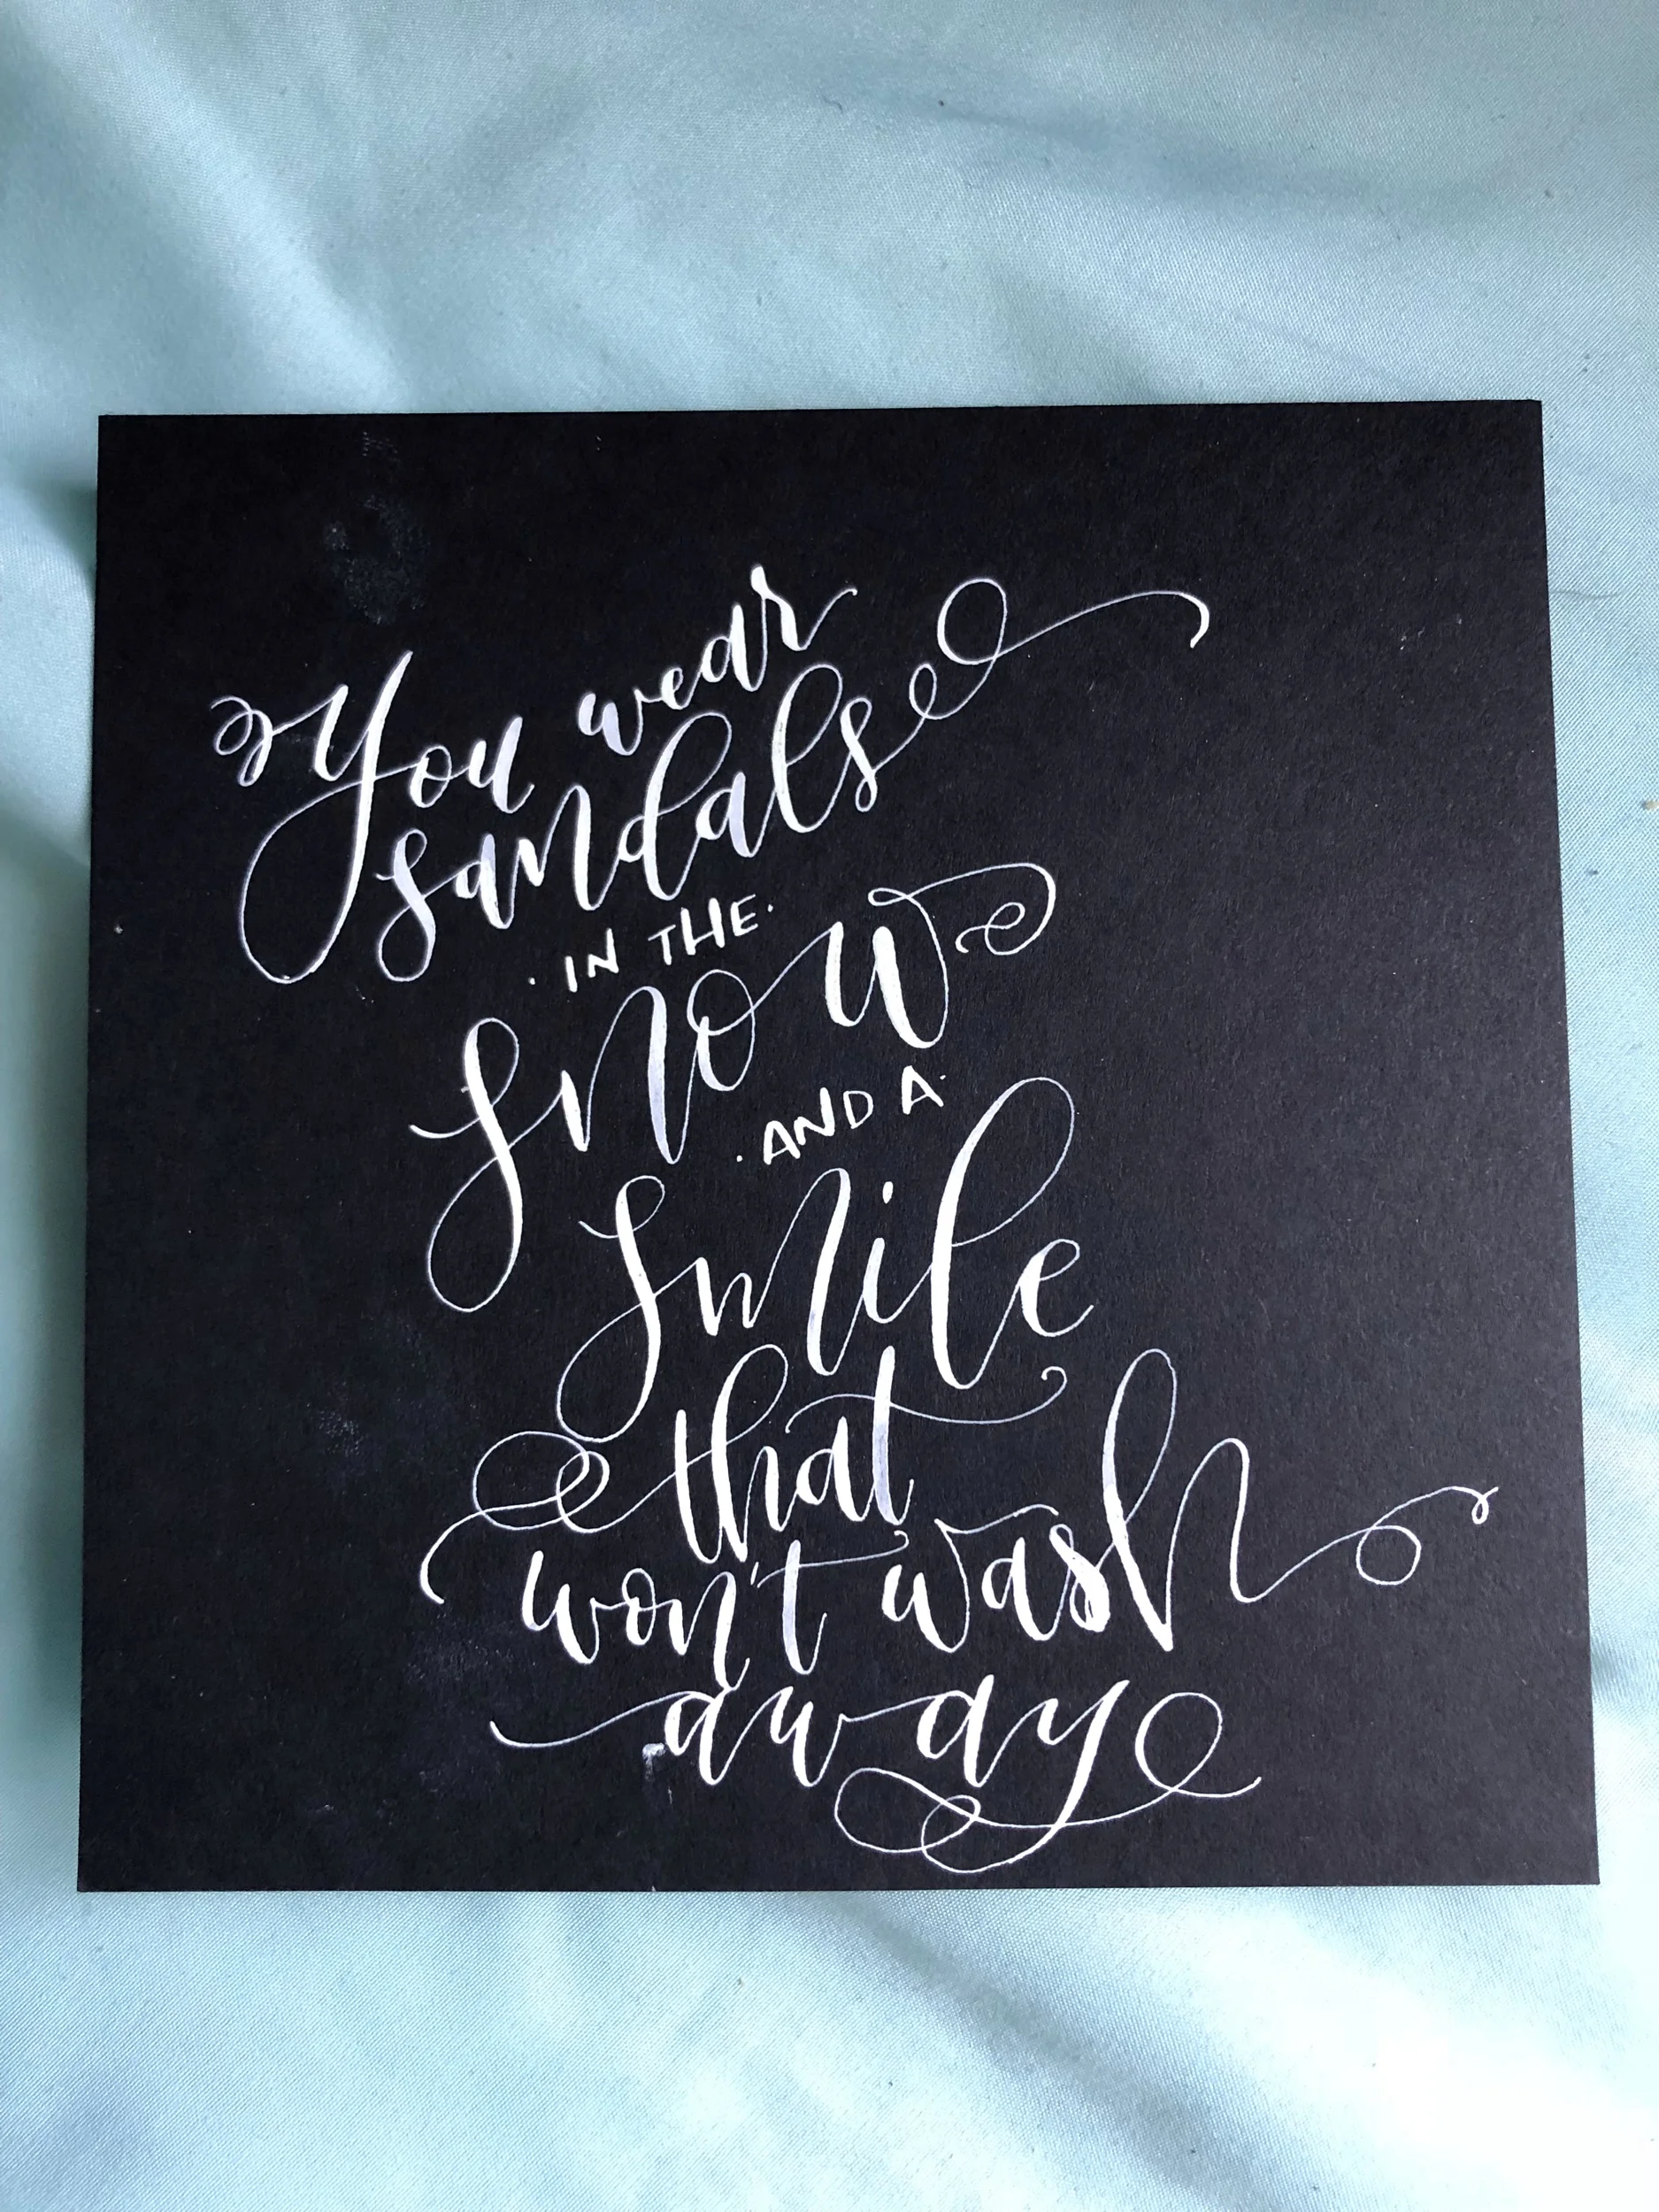 You wear
sandals
· IN THE ·
snow
· AND A ·
smile
that
won't wash
away